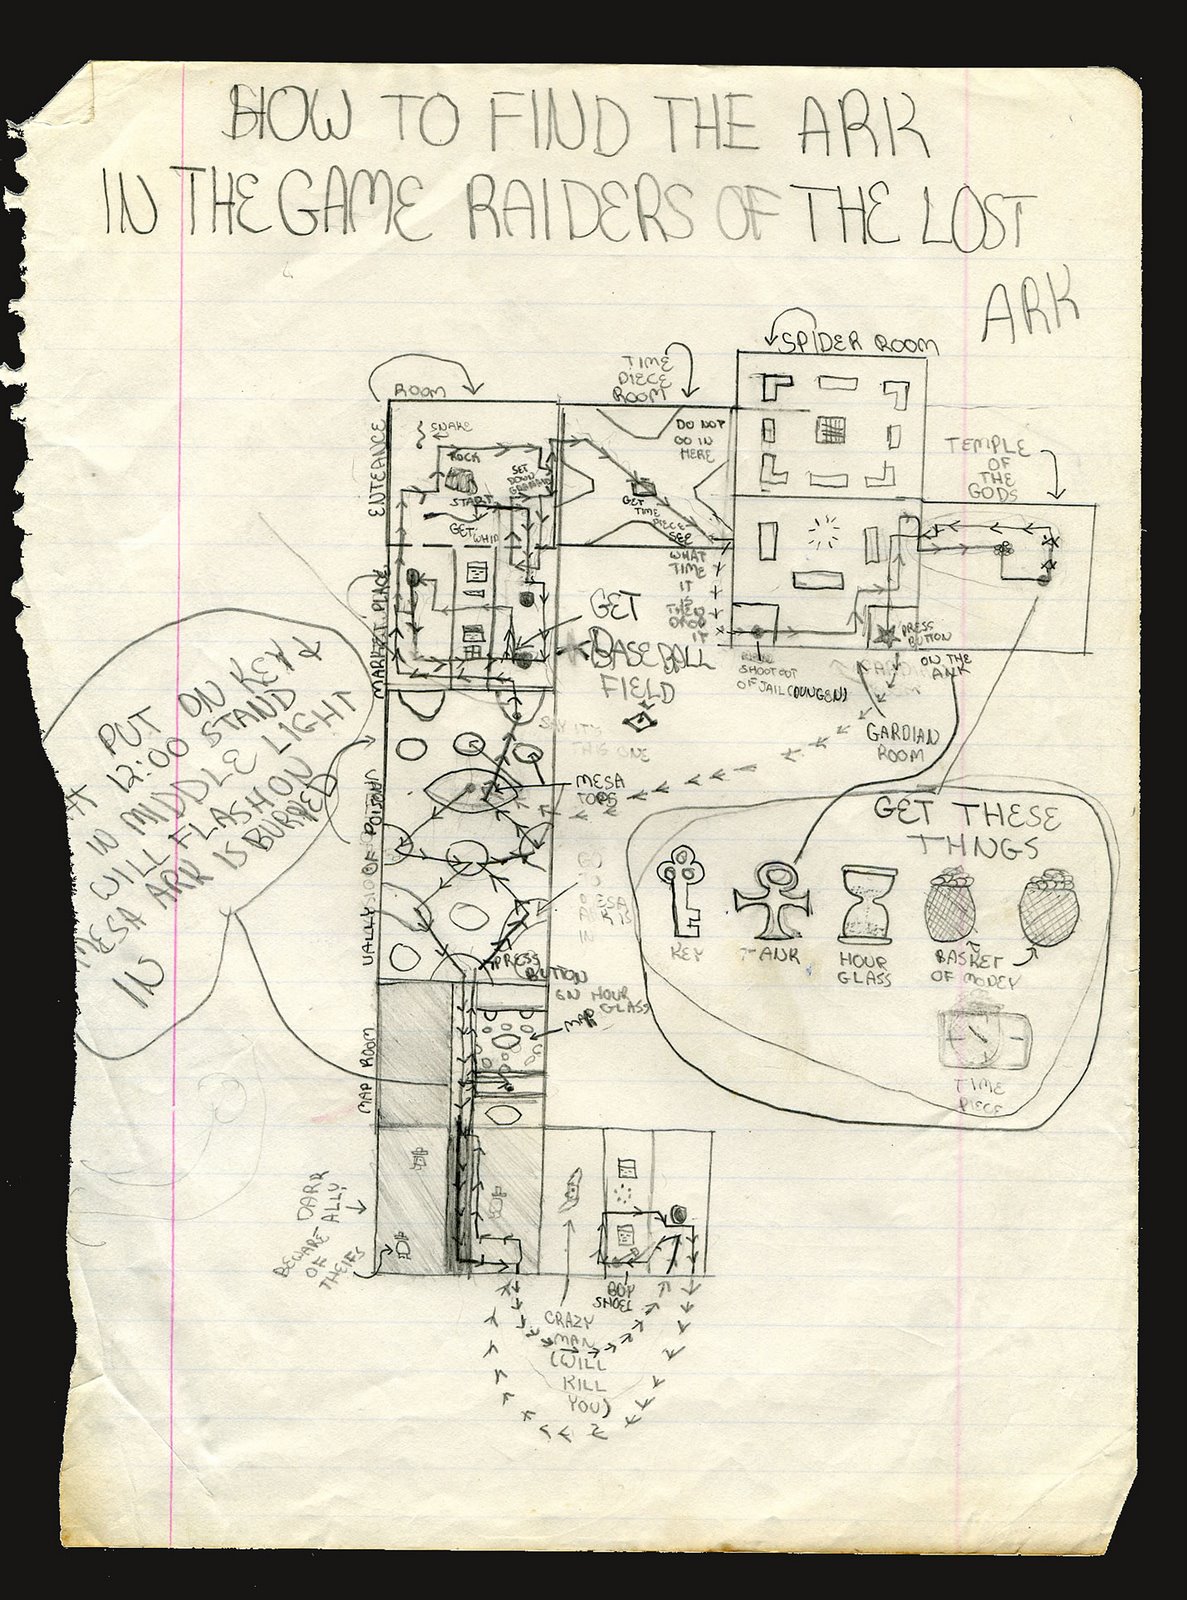 HOW TO FIND THE ARK
IN THE GAME RAIDERS OF THE LOST
ARK
SPIDER ROOM
TIME
PIECE
ROOM
ROOM
ENTEANCE
SNAKE
ROCK
SET
DOWN
START
GET WHIP
DO NOT
GO IN
HERE
GET
TIME
PIECE
SEE
WHAT
TIME
IT
IS
THEN
DROP
IT
TEMPLE
OF
THE
GODS
MARKET PLACE
GET
BASEBALL
FIELD
SHOOT OUT
OF JAIL (DUNGEN)
PRESS
BUTTON
ON THE
ANK
GARDIAN
ROOM
PUT ON KEY
AT 12:00 STAND
IN MIDDLE LIGHT
WILL FLASH ON
MESA ARK IS BURRED
IN
SAY IT'S
THIS ONE
MESA
TOPS
VALLY OF POISON
GO
TO
MESA
ARK IS
IN
PRESS
BUTTON
ON HOUR
GLASS
MAP
MAP ROOM
GET THESE
THINGS
KEY
ANK
HOUR
GLASS
BASKET
OF MONEY
TIME
PIECE
DARK
ALLY
BEWARE
OF
THEIFS
BUY
SHOEL
CRAZY
MAN
(WILL
KILL
YOU)